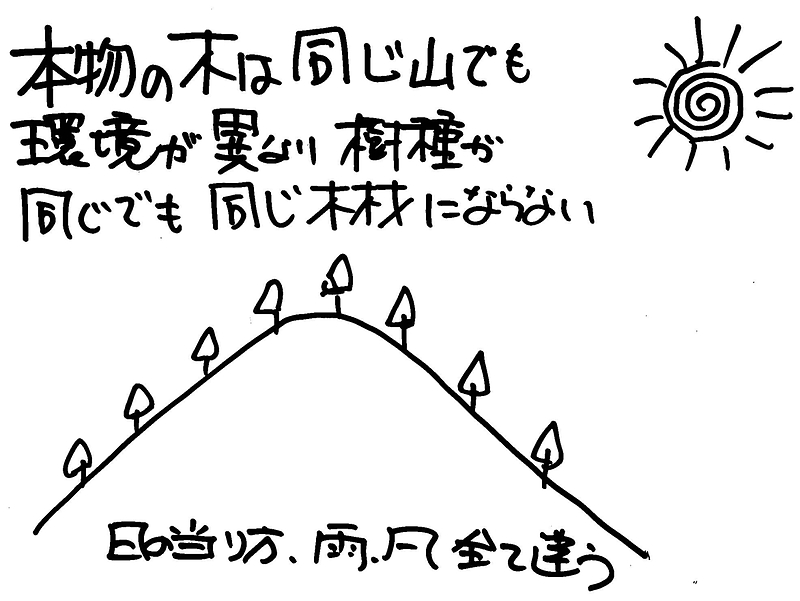 本物の木は同じ山でも
環境が異ない樹種が
同じでも同じ木材にならない
日の当り方、雨、風全て違う